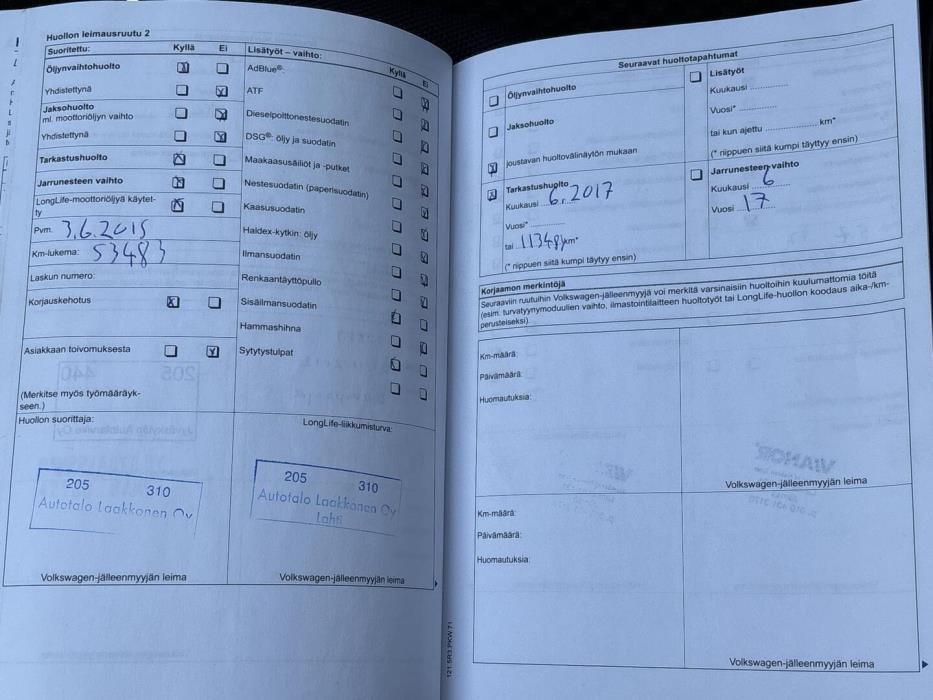 Huollon leimausruutu 2
Suoritettu: Kyllä Ei
Öljynvaihtohuolto
Yhdistettynä
Jaksohuolto
ml. moottoriöljyn vaihto
Yhdistettynä
Tarkastushuolto
Jarrunesteen vaihto
LongLife-moottoriöljyä käytet-
ty
Pvm. 3.6.2015
Km-lukema: 53483
Laskun numero:
Korjauskehotus
Asiakkaan toivomuksesta
(Merkitse myös työmääräyk-
seen.)
Huollon suorittaja:
205 310
Autotalo Laakkonen Oy
Volkswagen-jälleenmyyjän leima
Lisätyöt – vaihto: Kyllä Ei
AdBlue®:
ATF
Dieselpolttonestesuodatin
DSG®: öljy ja suodatin
Maakaasusäiliöt ja -putket
Nestesuodatin (paperisuodatin)
Kaasusuodatin
Haldex-kytkin: öljy
Ilmansuodatin
Renkaantäyttöpullo
Sisäilmansuodatin
Hammashihna
Sytytystulpat
LongLife-liikkumisturva:
205 310
Autotalo Laakkonen Oy
Lahti
Volkswagen-jälleenmyyjän leima
121.5R3.PKW.71
Seuraavat huoltotapahtumat
Öljynvaihtohuolto
Jaksohuolto
joustavan huoltovälinäytön mukaan
Tarkastushuolto
Kuukausi 6. 2017
Vuosi* ............
tai 113483 km*
(* riippuen siitä kumpi täytyy ensin)
Lisätyöt
Kuukausi ............
Vuosi* ............
tai kun ajettu ............ km*
(* riippuen siitä kumpi täyttyy ensin)
Jarrunesteen vaihto
Kuukausi 6
Vuosi 17
Korjaamon merkintöjä
Seuraaviin ruutuihin Volkswagen-jälleenmyyjä voi merkitä varsinaisiin huoltoihin kuulumattomia töitä
(esim. turvatyynymoduulien vaihto, ilmastointilaitteen huoltotyöt tai LongLife-huollon koodaus aika-/km-
perusteiseksi).
Km-määrä:
Päivämäärä:
Huomautuksia:
Volkswagen-jälleenmyyjän leima
Km-määrä:
Päivämäärä:
Huomautuksia:
Volkswagen-jälleenmyyjän leima